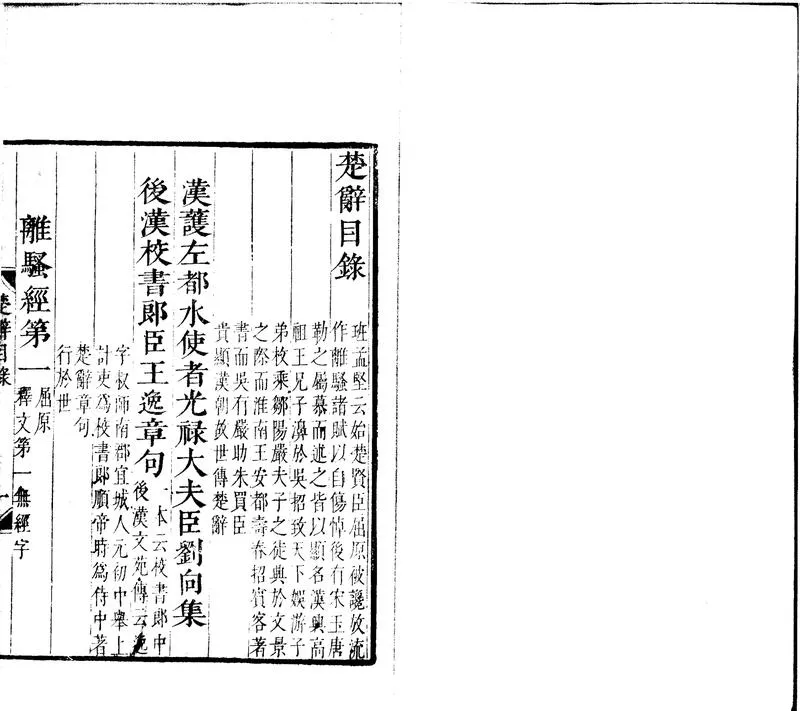 楚辭目錄
班孟堅云始楚賢臣屈原被讒放流
作離騷諸賦以自傷悼後有宋玉唐
勒之屬慕而述之皆以顯名漢興高
祖王兄子濞於吳招致天下娛游子
弟枚乘鄒陽嚴夫子之徒興於文景
之際而淮南王安都壽春招賓客著
書而吳有嚴助朱買臣
貴顯漢朝故世傳楚辭
漢護左都水使者光祿大夫臣劉向集
後漢校書郎臣王逸章句
一本云校書郎中
後漢文苑傳云逸
字叔師南郡宜城人元初中舉上
計吏為校書郎順帝時為侍中著
楚辭章句
行於世
離騷經第一
屈原
釋文第一無經字
楚辭目錄
一